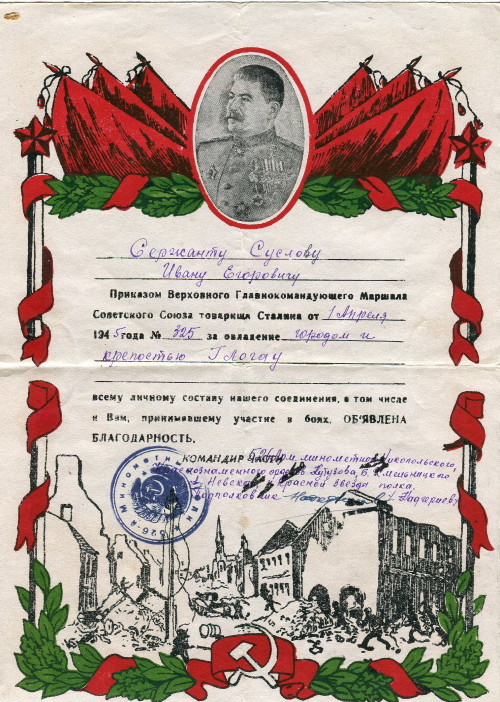 Сержанту Суслову
Ивану Егоровичу
Приказом Верховного Главнокомандующего Маршала
Советского Союза товарища Сталина от 1 Апреля
1945 года № 325 за овладение городом и
крепостью Глогау
всему личному составу нашего соединения, в том числе
и Вам, принимавшему участие в боях, ОБ'ЯВЛЕНА
БЛАГОДАРНОСТЬ.
КОМАНДИР ЧАСТИ
526 Арм. минометного Никопольского,
Краснознаменного орденов Кутузова, Б. Хмельницкого
А. Невского и Красной звезда полка,
подполковник